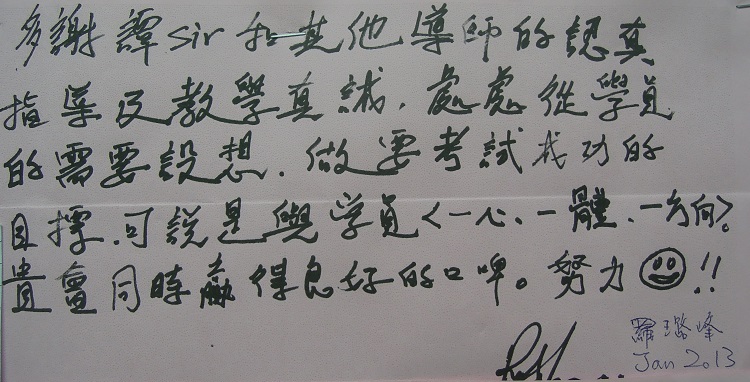 多謝譚sir和其他導師的認真
指導及教學真誠,處處從學員
的需要設想.做要考試成功的
目標.可說是與学員<一心、一體、一方向>。
貴會同時贏得良好的口啤。努力!!
羅璐峰
Jan 2013